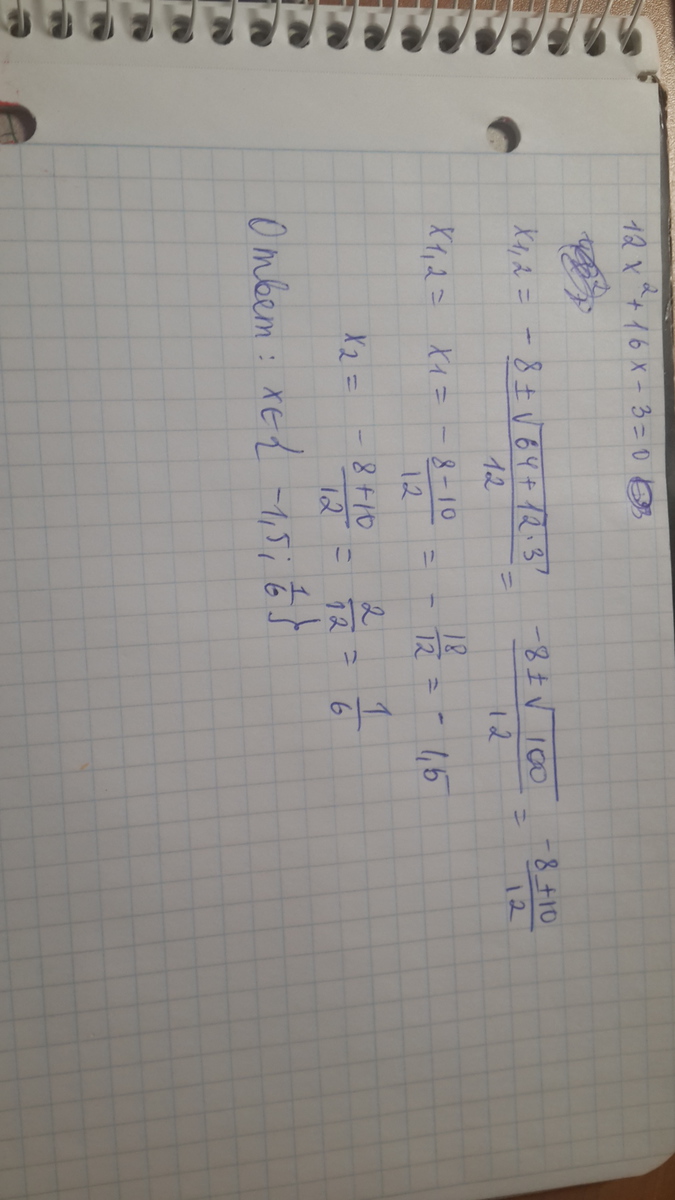 12x² + 16x - 3 = 0
x1,2 = -8 ± √64 + 12·3 / 12 = -8 ± √100 / 12 = -8 ± 10 / 12
x1,2 = x1 = - 8 - 10 / 12 = - 18 / 12 = - 1,5
x2 = - 8 + 10 / 12 = 2 / 12 = 1 / 6
Ответ: x ∈ { -1,5; 1/6 }